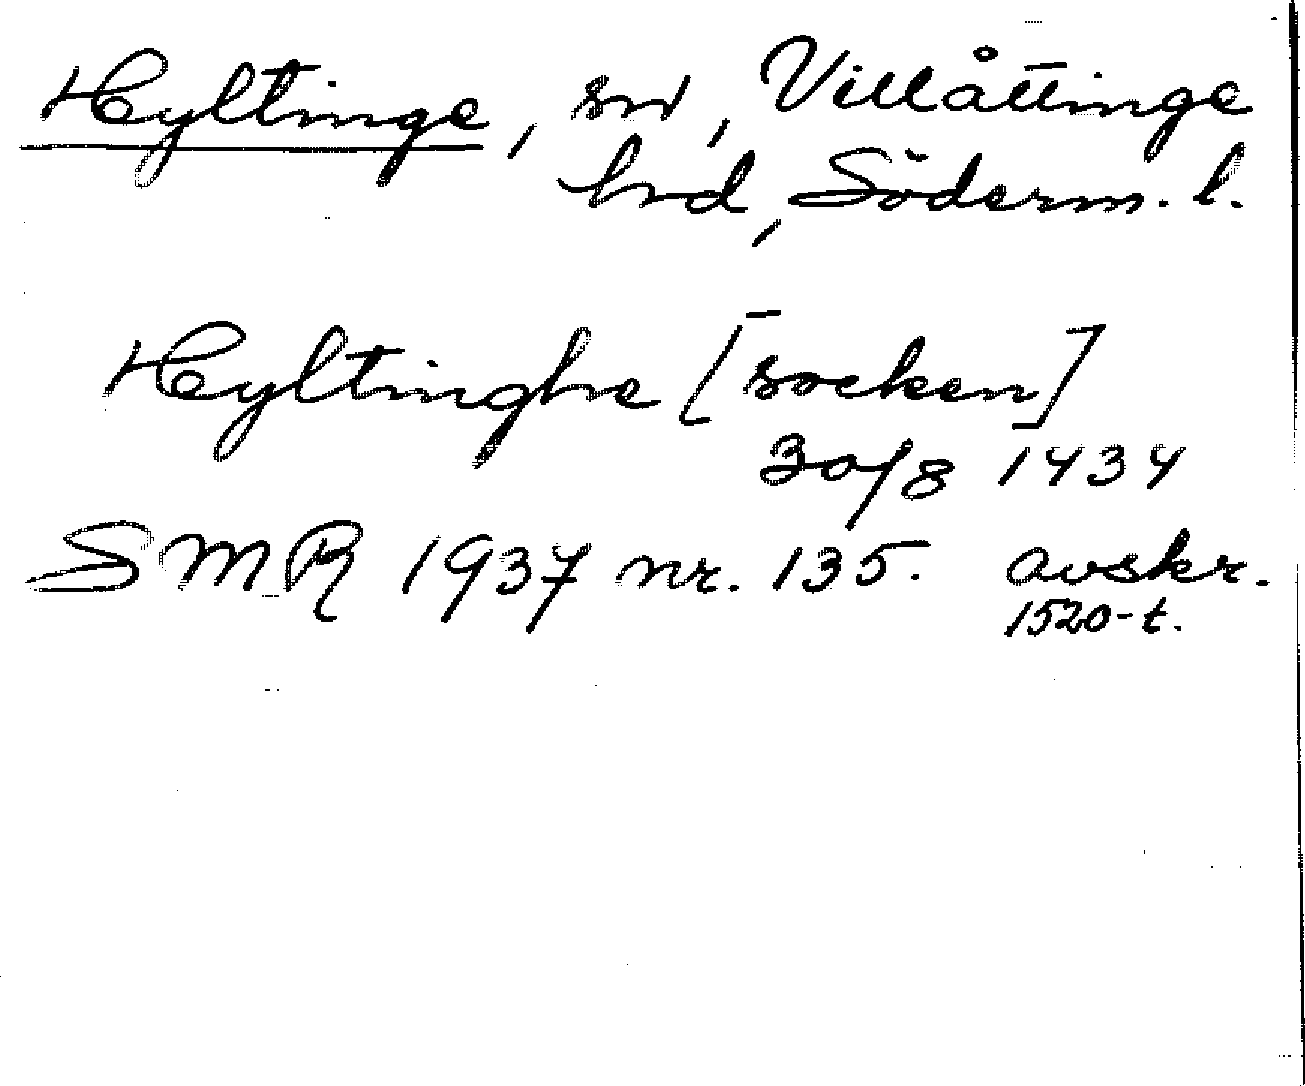 Hyltinge, sn, Villåttinge
hrd, Söderm. l.
Hyltinghe [socken]
30/8 1434
SMR 1937 nr. 135. avskr.
1520-t.